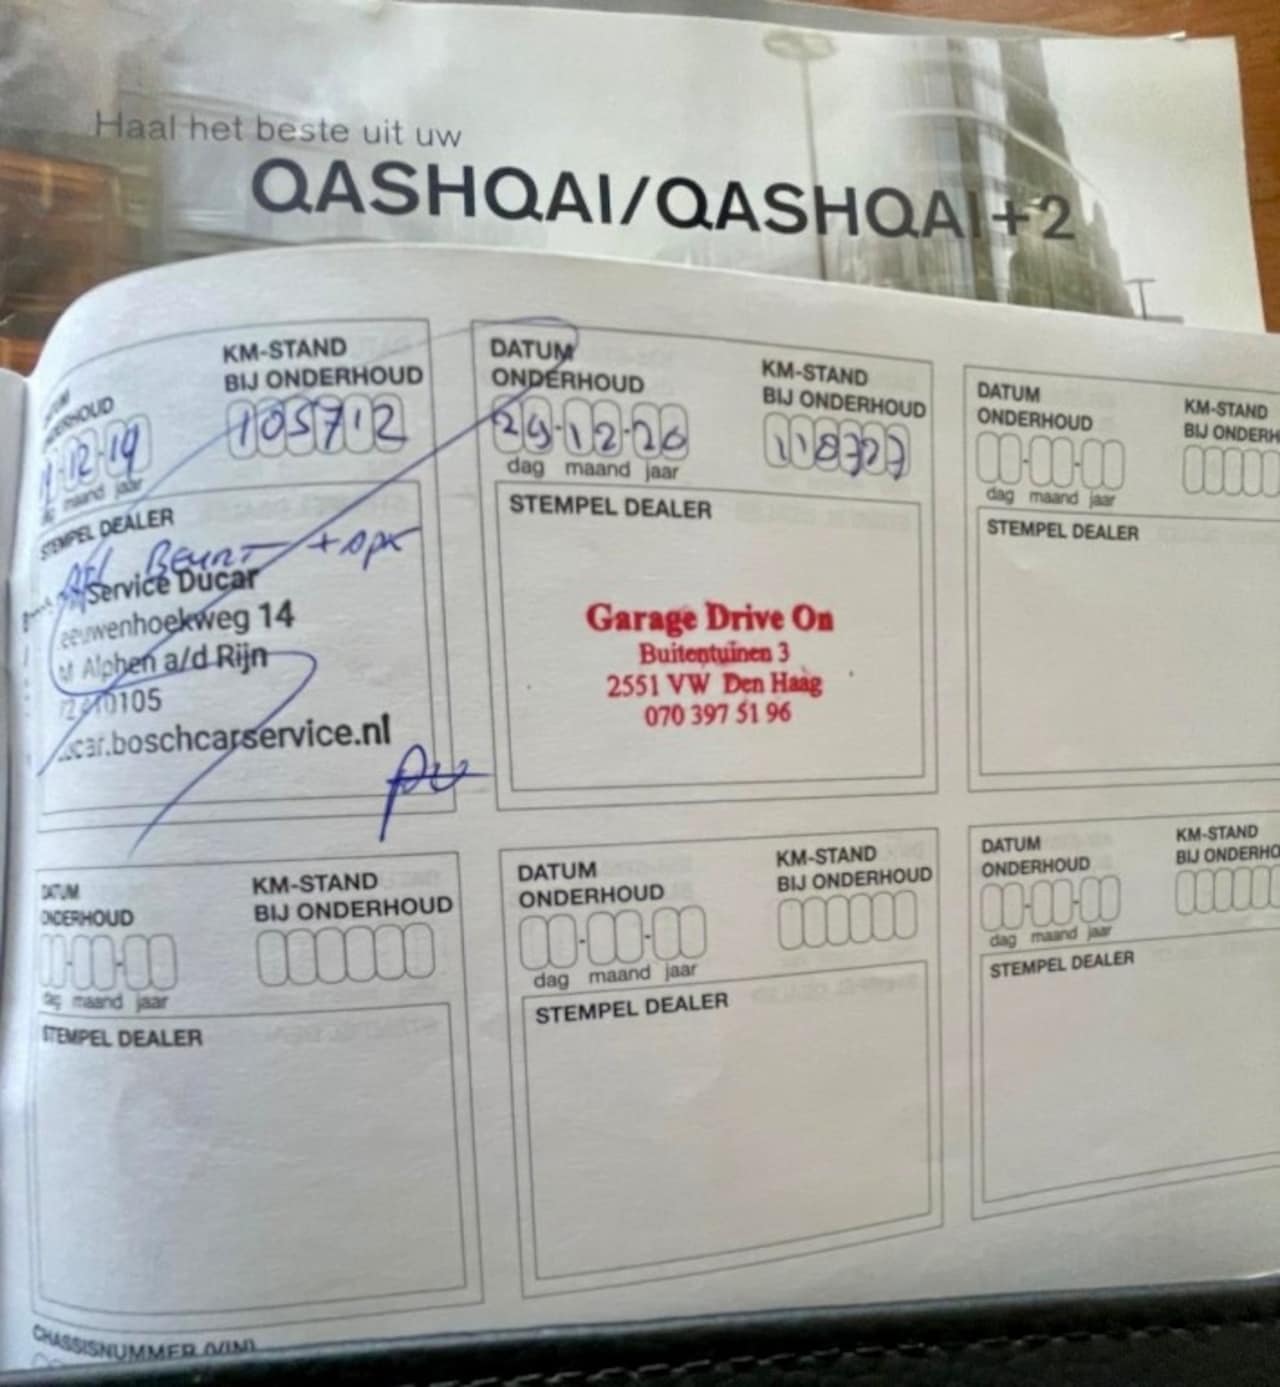 Haal het beste uit uw
QASHQAI/QASHQAI+2
KM-STAND
BIJ ONDERHOUD
105712
12-19
maand jaar
STEMPEL DEALER
BEURT + apk
Service Ducar
eeuwenhoekweg 14
M Alphen a/d Rijn
0105
car.boschcarservice.nl
DATUM
ONDERHOUD
KM-STAND
BIJ ONDERHOUD
29-12-20
118727
dag maand jaar
STEMPEL DEALER
Garage Drive On
Buitentuinen 3
2551 VW Den Haag
070 397 51 96
DATUM
ONDERHOUD
KM-STAND
BIJ ONDERH
dag maand jaar
STEMPEL DEALER
DATUM
ONDERHOUD
KM-STAND
BIJ ONDERHOUD
dag maand jaar
STEMPEL DEALER
DATUM
ONDERHOUD
KM-STAND
BIJ ONDERHOUD
dag maand jaar
STEMPEL DEALER
DATUM
ONDERHOUD
KM-STAND
BIJ ONDERHO
dag maand jaar
STEMPEL DEALER
CHASSISNUMMER (VIN)